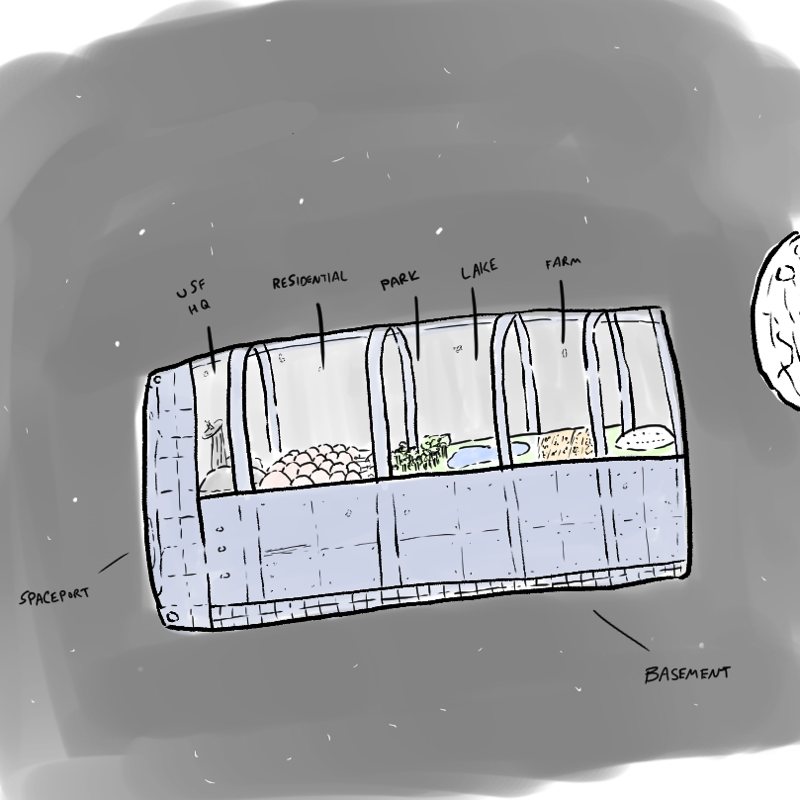 USF
HQ
RESIDENTIAL
PARK
LAKE
FARM
SPACEPORT
BASEMENT